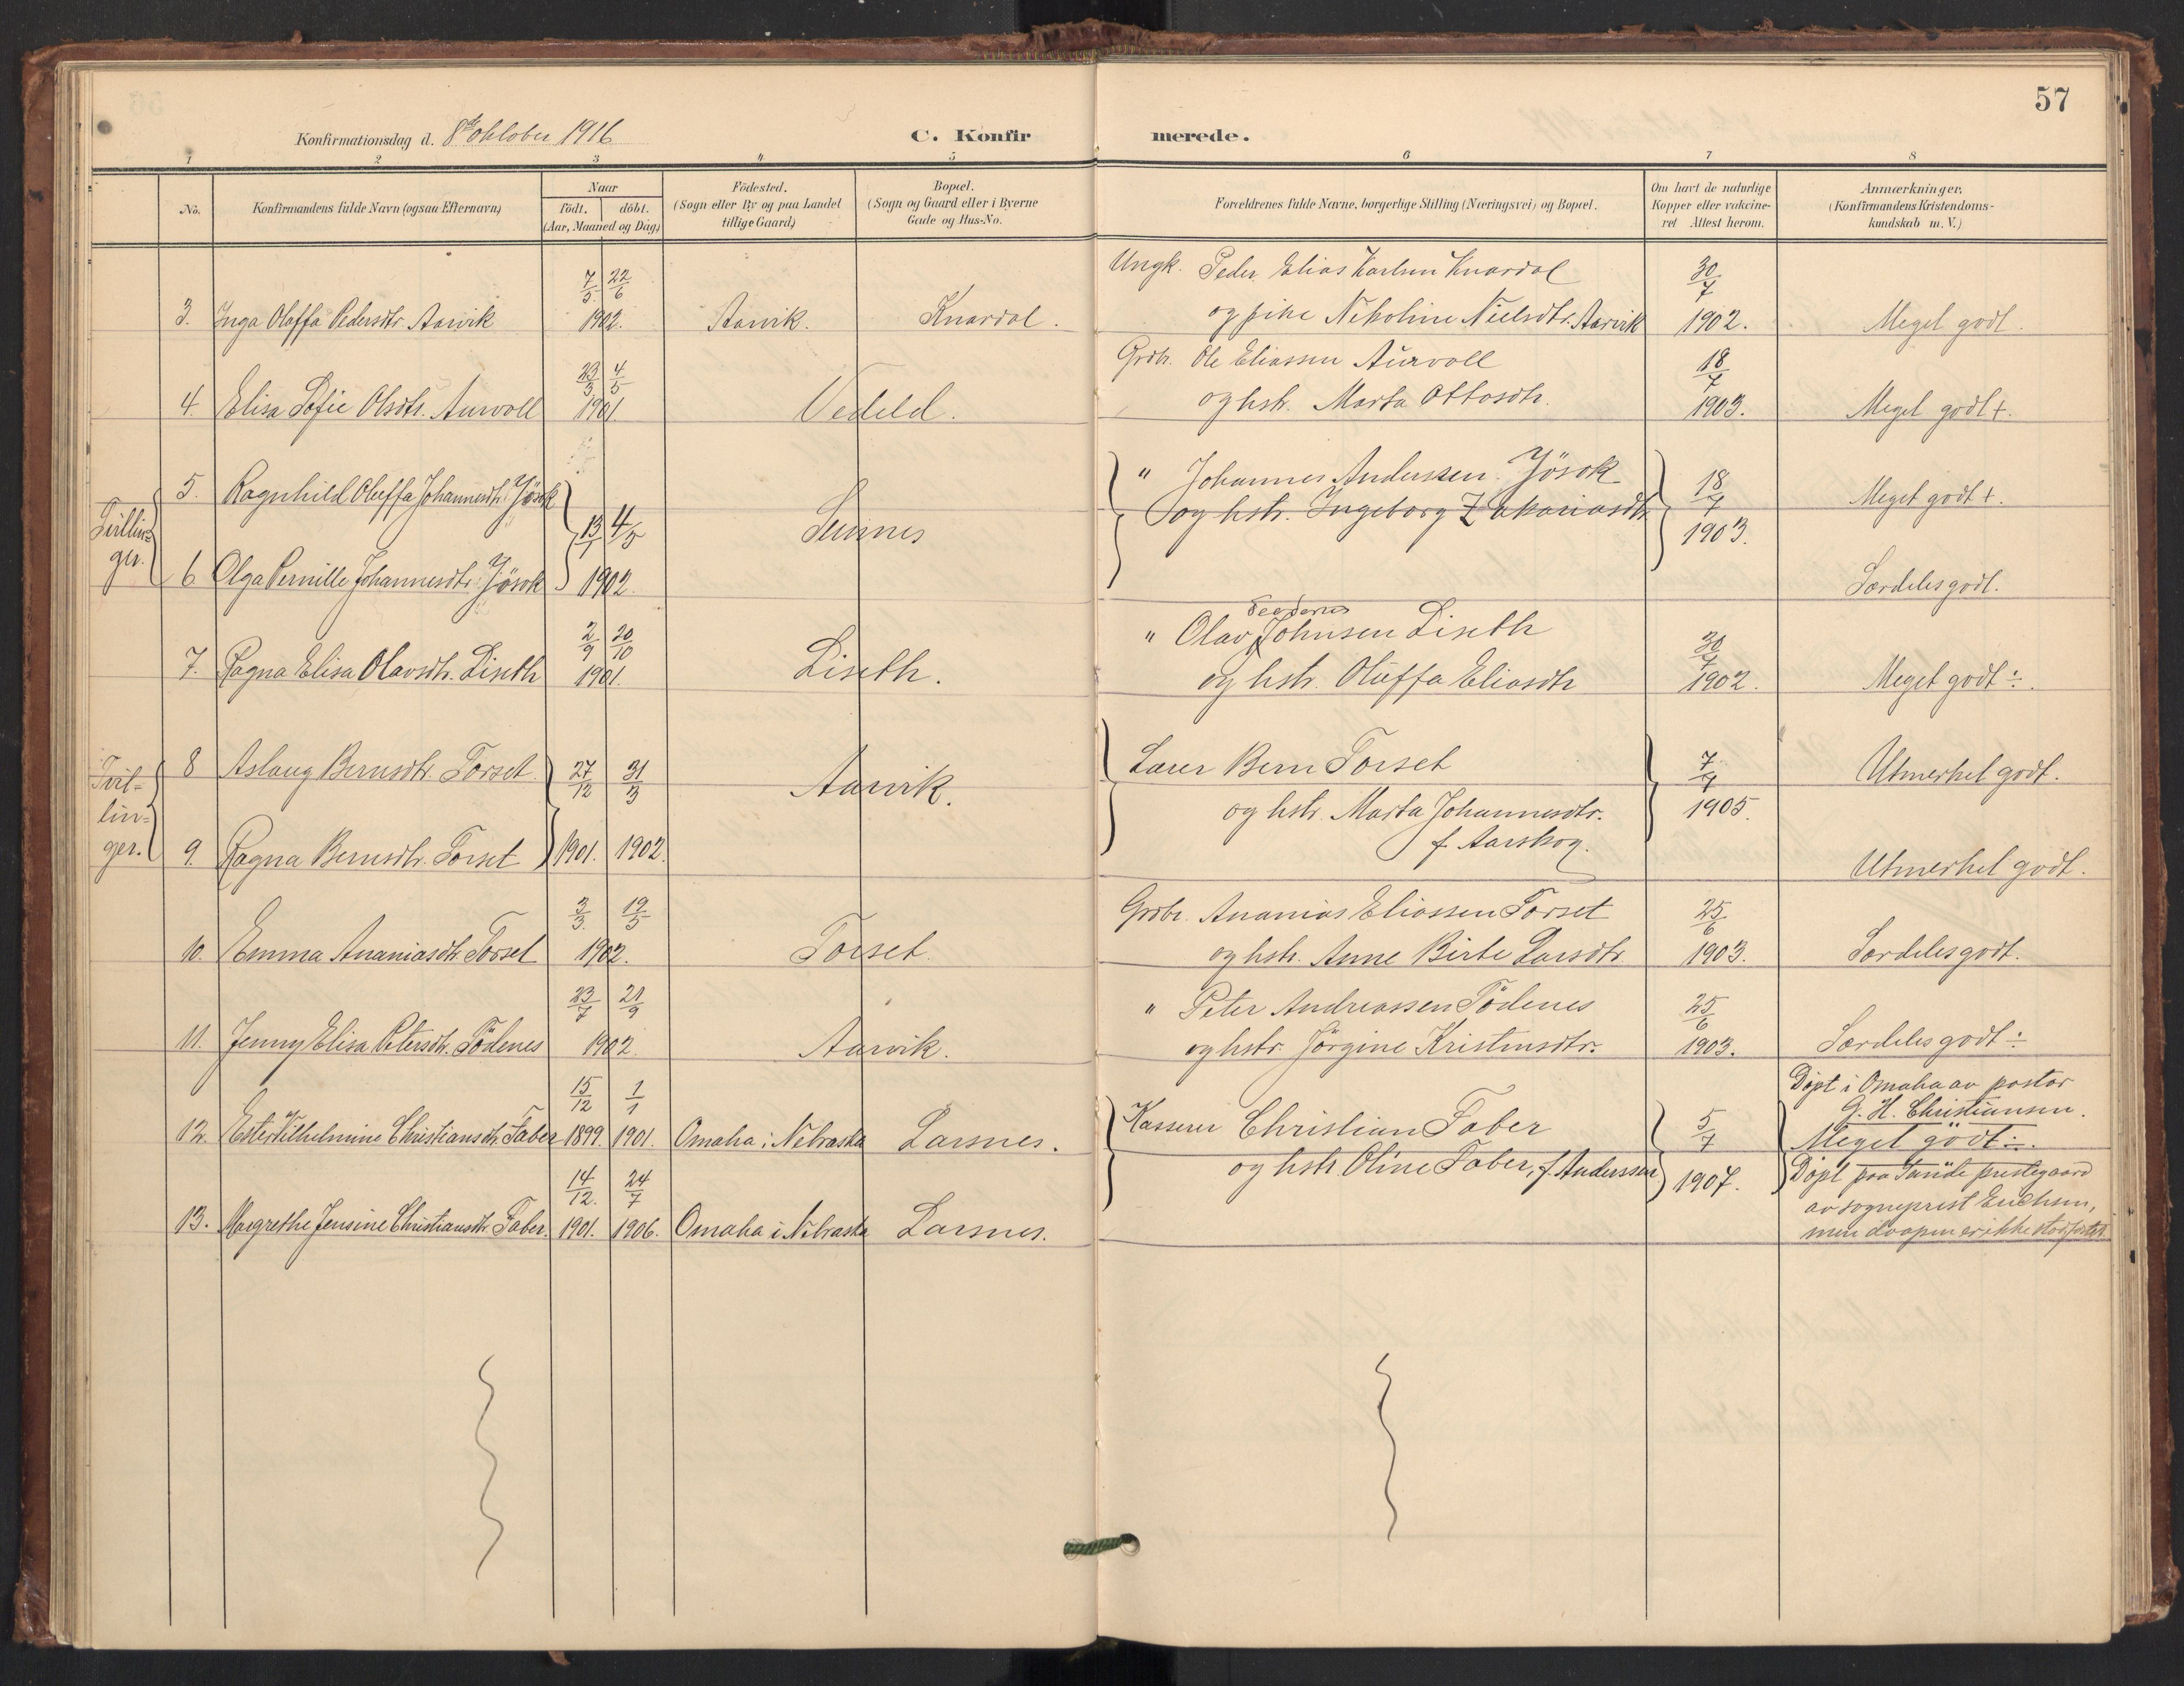 57
Konfirmationsdag d. 8de oktober 1916
C. Konfirmerede.
1 2 3 4 5 6 7 8
No.
Konfirmandens fulde Navn (ogsaa Efternavn)
Naar
födt. döbt.
(Aar, Maaned og Dag)
Födested.
(Sogn eller By og paa Landet
tillige Gaard)
Bopæl.
(Sogn og Gaard eller i Byerne
Gade og Hus-No.
Forældrenes fulde Navne, borgerlige Stilling (Næringsvei) og Bopæl.
Om havt de naturlige
Kopper eller vakcine-
ret Attest herom.
Anmærkninger.
(Konfirmandens Kristendoms-
kundskab m. V.)
7/5 22/6 Ungk. Peder Elias Karlsen Knardal 30/7
3. Inga Oloffa Pedersdtr. Aarvik 1902. Aarvik. Knardal. og pike Nikoline Nielsdtr. Aarvik 1902. Meget godt.
23/3 4/5 Grdbr. Ole Eliassen Aurvoll 18/7
4. Elisa Sofie Olsdtr. Aurvoll 1901. Vedeld. og hstr. Marta Ottosdtr. 1903. Meget godt +.
5. Ragnhild Oluffa Johannesdtr. Jösok " Johannes Anderssen Jösok 18/7 Meget godt +.
Tvillin=
ger. 13/1 4/5 og hstr. Ingeborg Zakariasdtr. 1903.
6 Olga Pernille Johannesdtr. Jösok 1902. Særdeles godt.
2/9 20/10 " Olav Johnsen Liseth 30/7
7. Ragna Elisa Olavsdtr. Liseth 1901. Liseth. og hstr. Oluffa Eliasdtr 1902. Meget godt ÷.
8 Aslaug Bernsdtr. Torset. 27/12 31/3 Aarvik. Lærer Bern Torset 7/7 Utmerket godt.
Tvil=
lin=
ger. og hstr. Marta Johannesdtr. 1905.
f. Aarskog.
9. Ragna Bernsdtr. Torset 1901. 1902. Utmerket godt.
3/3. 19/5 Grdbr. Ananias Eliassen Torset 25/6
10. Emma Ananiasdtr. Torset 1902. Torset. og hstr. Anne Birte Larsdtr. 1903. Særdeles godt.
23/7 21/9 " Peter Andreassen Tödenes 25/6
11. Jenny Elisa Petersdtr. Tödenes 1902. Aarvik. og hstr. Jörgine Kristensdtr. 1903. Særdeles godt ÷
15/12 1/1 Döpt i Omaha av pastor
G. H. Christiansen.
12. Ester Vilhelmine Christiansdtr. Faber 1899. 1901. Omaha i Nebraska Larsnes. Kasserer Christian Faber 5/7 Meget godt ÷.
14/12. 24/7 og hstr. Oline Faber, f. Anderssen 1907. Döpt paa prestegaard
av sogneprest
13. Margrethe Jensine Christiansdtr. Faber. 1901. 1906. Omaha i Nebraska Larsnes. men daapen er ikke